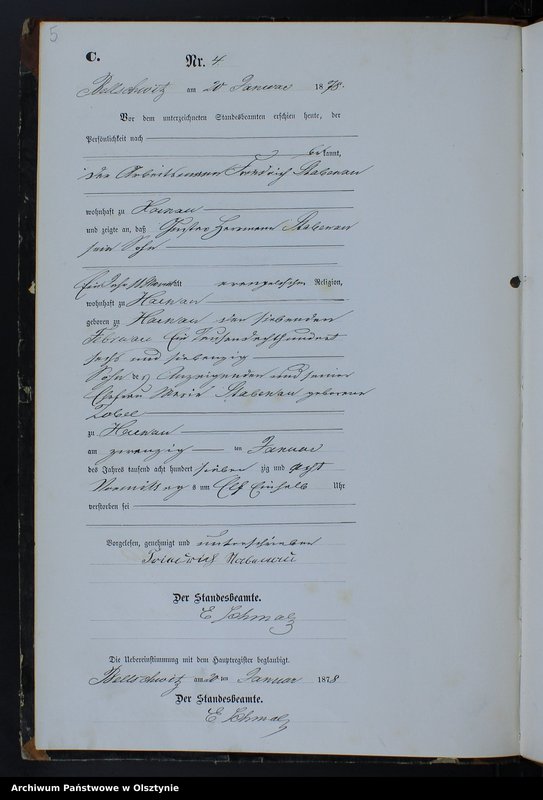 5
C.
Nr. 4
Bellschwitz am 20 Januar 1878.
Vor dem unterzeichneten Standesbeamten erschien heute, der
Persönlichkeit nach
bekannt,
der Arbeitsmann Friedrich Stabenau
wohnhaft zu Hainau
und zeigte an, daß Gustav Herrmann Stabenau
sein Sohn
Ein Jahr 11 Monat alt evangelischer Religion,
wohnhaft zu Hainau
geboren zu Hainau den siebenden
Februar Ein Tausendachthundert
sechs und siebenzig
Sohn des Anzeigenden und seiner
Ehefrau Marie Stabenau geborene
Zobel
zu Hainau
am zwanzig ten Januar
des Jahres tausend acht hundert sieben zig und acht
Vormittags um Elf Einhalb Uhr
verstorben sei
Vorgelesen, genehmigt und unterschrieben
Friedrich Stabenau
Der Standesbeamte.
E Schmalz
Die Uebereinstimmung mit dem Hauptregister beglaubigt.
Bellschwitz am 20 ten Januar 1878
Der Standesbeamte.
E Schmalz
Archiwum Państwowe w Olsztynie